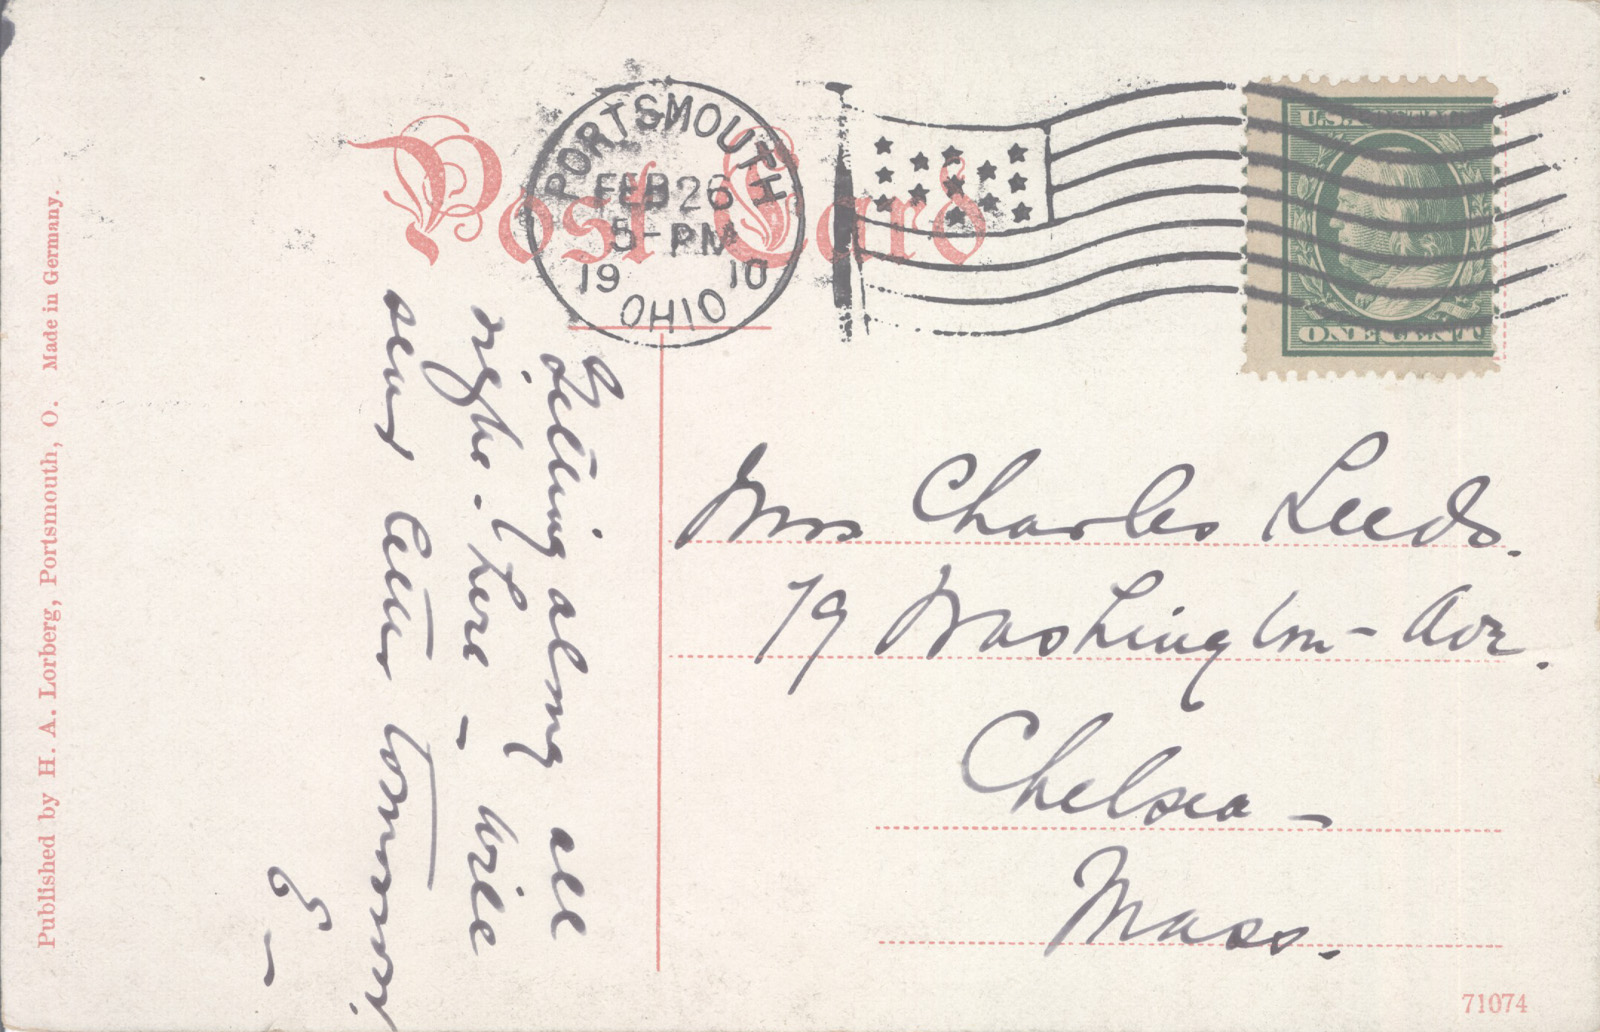 Post Card
PORTSMOUTH
FEB 26
5-PM
1910
OHIO
U.S. POSTAGE
ONE CENT
Getting along all
right here - will
send letter tomorrow.
E -
Mrs Charles Leeds.
79 Washington - Ave.
Chelsea -
Mass.
Published by H. A. Lorberg, Portsmouth, O. Made in Germany.
71074